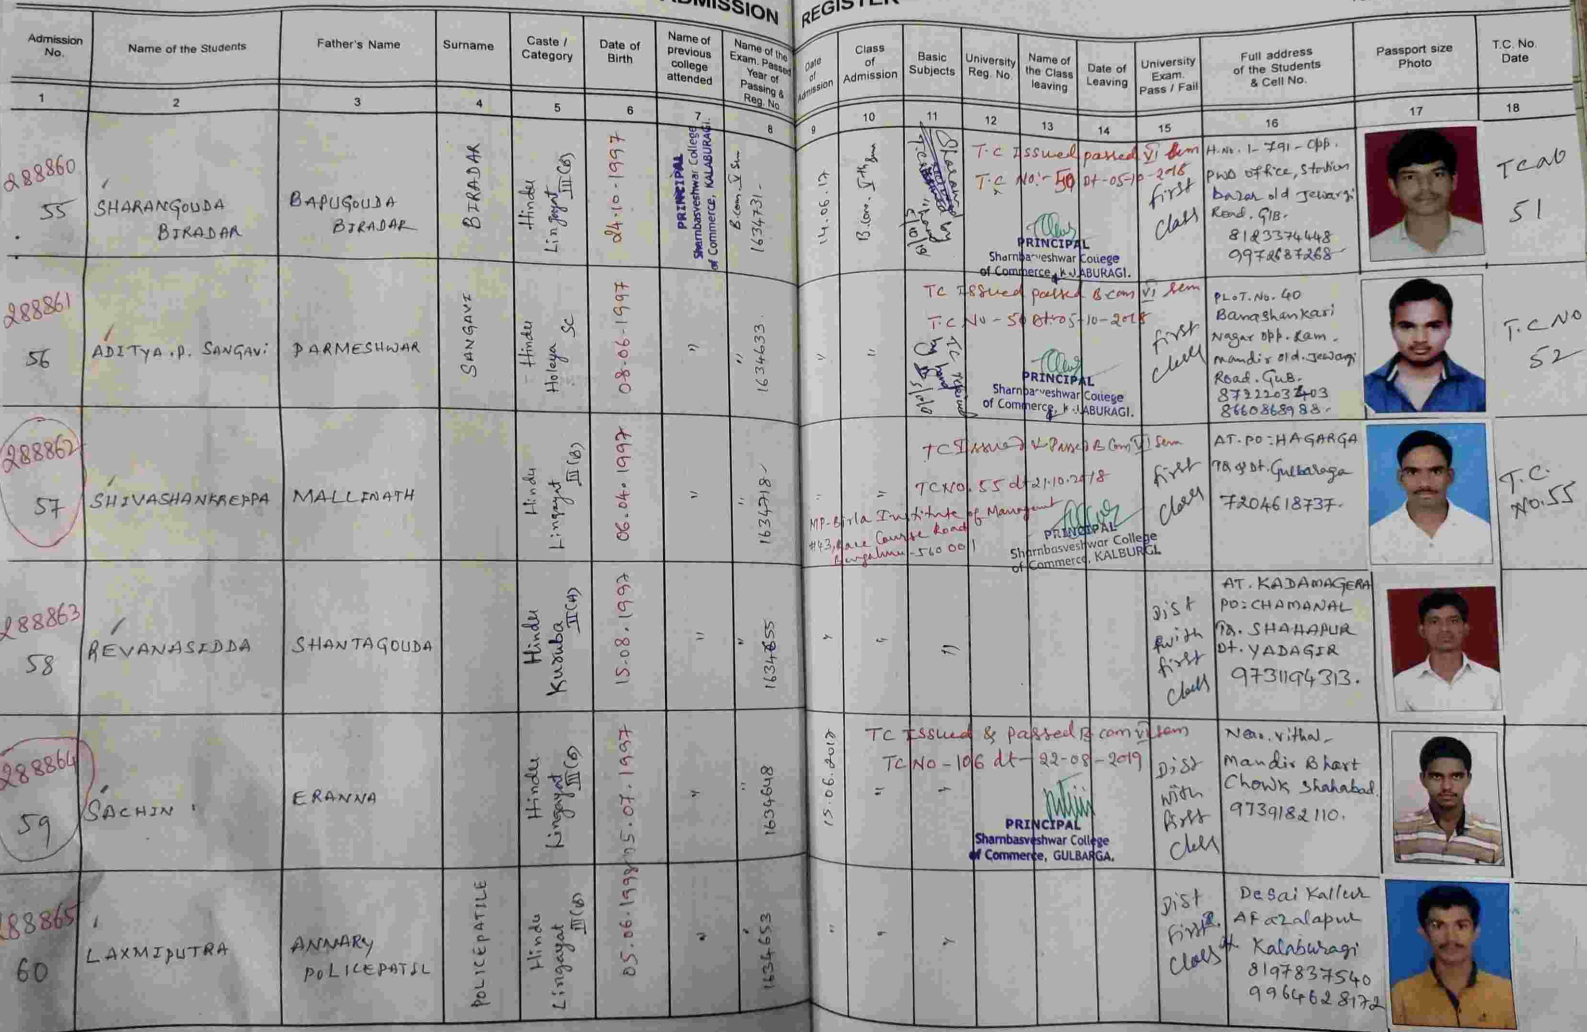 ADMISSION REGISTER
Admission No.
Name of the Students
Father's Name
Surname
Caste / Category
Date of Birth
Name of previous college attended
Name of the Exam. Passed Year of Passing & Reg. No
Date of Admission
Class of Admission
Basic Subjects
University Reg. No.
Name of the Class leaving
Date of Leaving
University Exam. Pass / Fail
Full address of the Students & Cell No.
Passport size Photo
T.C. No. Date
1 2 3 4 5 6 7 8 9 10 11 12 13 14 15 16 17 18
288860
55
SHARANGOUDA
BIRADAR
BAPUGOUDA
BIRADAR
BIRADAR
Hindu
Lingayat III(B)
24.10.1997
PRINCIPAL
Sharnbasveshwar College
of Commerce, KALABURAGI.
B.com. V Sem
1634731-
14.06.17
B.com. Vth Sem
T.C Issued passed VI Sem
T.C No:- 50 Dt-05-10-2018
PRINCIPAL
Sharnbasveshwar College
of Commerce, KALABURAGI.
First
class
H.No. 1-791-Opp.
PWD office, Station
Bazar old Jewargi
Road. GlB.
8123374448
9972687268
TC No
51
288861
56
ADITYA .P. SANGAVI
PARMESHWAR
SANGAVI
Hindu
Holeya SC
08.06.1997
"
"
1634633
"
"
TC Issued passed B.com VI sem
T.C No - 50 Dt:05-10-2018
PRINCIPAL
Sharnbasveshwar College
of Commerce, KALABURAGI.
First
class
PLOT. No. 40
Banashankari
Nagar opp. Ram.
Mandir old. Jewargi
Road. GuB.
8660868988
T.C NO
52
288862
57
SHIVASHANKREPPA
MALLINATH
Hindu
Lingayat III(B)
06.04.1997
"
"
1634718
"
"
TC Issued & Passed B Com VI Sem
TC NO. 55 dt 21.10.2018
MP-Birla Institute of Managment
#43, Race Course Road
Bengaluru-560 001
PRINCIPAL
Sharnbasveshwar College
of Commerce, KALBURGI.
First
class
AT. PO: HAGARGA
Tq & Dt. Gulbaraga
7204618737.
T.C.
No.55
288863
58
REVANASIDDA
SHANTAGOUDA
Hindu
Kuruba II(A)
15.08.1997
"
"
"
"
"
Dist
with
first
class
AT. KADAMAGERA
PO: CHAMANAL
Tq. SHAHAPUR
Dt. YADAGIR
9731194313.
288864
59
SACHIN
ERANNA
Hindu
Lingayat III(B)
05.07.1997
"
"
1634648
15.06.2017
"
"
TC Issued & passed B com VI sem
TC NO - 106 dt - 22-08-2019
PRINCIPAL
Sharnbasveshwar College
of Commerce, GULBARGA.
Dist
with
first
class
Near. Vithal
Mandir Bhart
Chowk Shahabad.
9739182110.
288865
60
LAXMIPUTRA
ANNARY
POLICEPATIL
POLICEPATILE
Hindu
Lingayat III(B)
05.06.1998
"
"
1634653
"
"
"
Dist
First
Class
Desai Kallur
Afazalapur
Kalaburagi
8197837540
9964628172